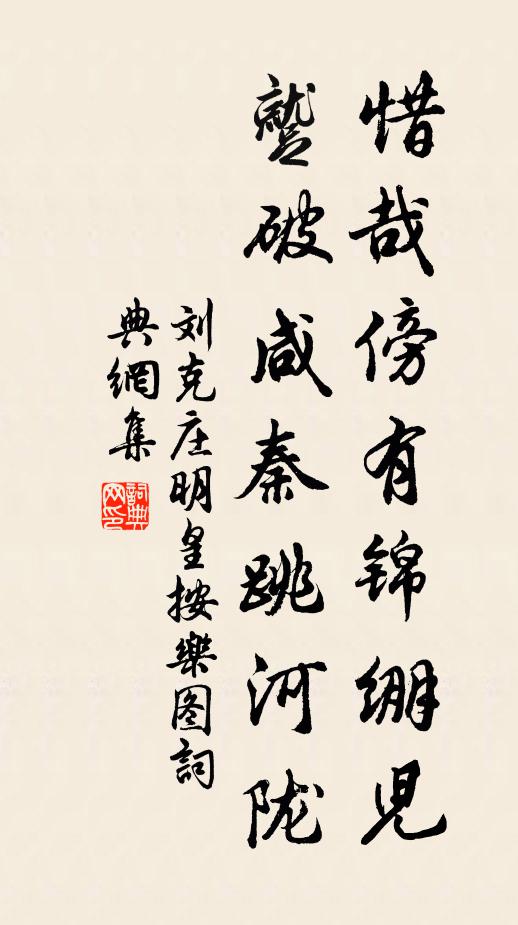 惜哉傍有锦绷兒
蹵破咸秦跳河陇
刘克庄明皇按樂图詞
典網集
詞典网印